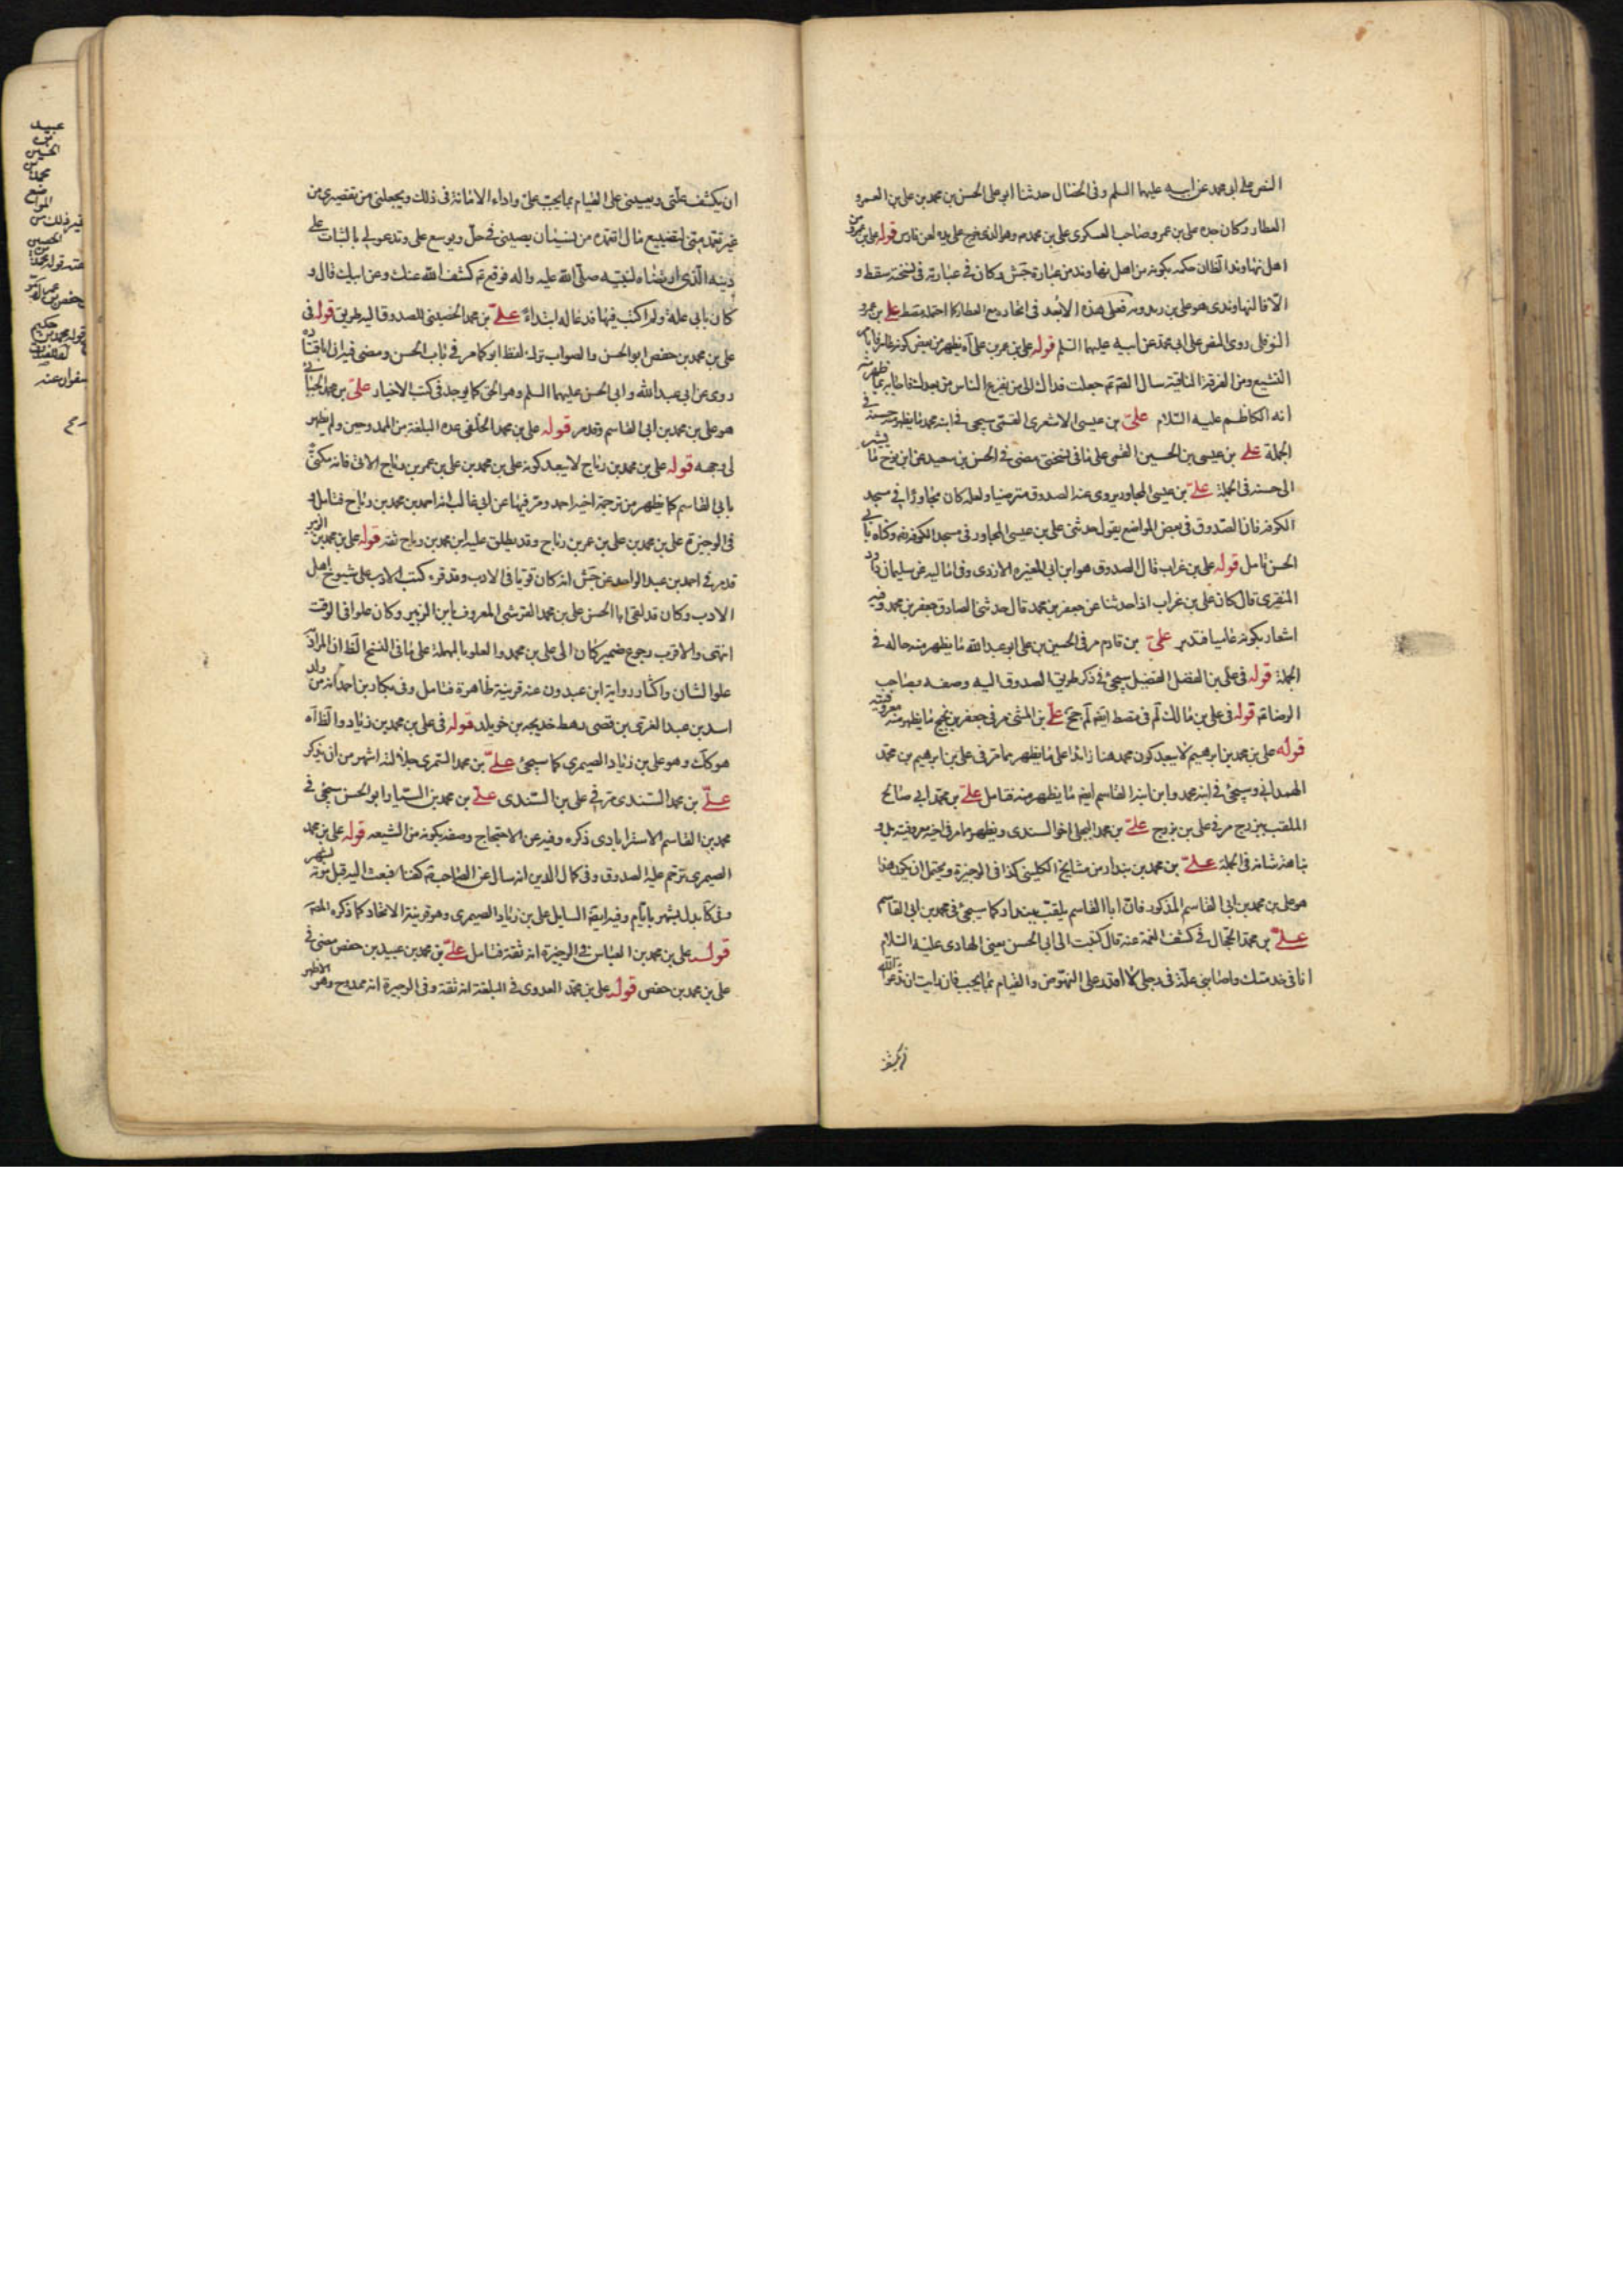 النص على ابى محمد عن ابيه عليهما السلم وفى الخصال حدثنا ابو على الحسن بن محمد بن على بن العمرو
العطار وكان جده على بن عمرو صاحب العسكرى على بن محمد م وهو الذى خرج على يده لعن فارس قوله على بن عمرو من
اهل نهاوند الظان حكمه بكونه من اهل نهاوند من عبارة جش وكان فى عبارته فى نسخته سقط و
الا فالنهاوندى هو على بن فعلى هذه الابعد فى اتحاده مع العطار كما احتمله مصط على بن عمرو
النوفلى روى النص على ابى محمد عن ابيه عليهما السلم قوله على بن عمر بن على آه يظهر من بعض كونه
التشيع ومن الفرقة الناقية سال القم جعلت فداك الى من يفزع الناس من بعدك فاجابه بما يظهر منه
انه الكاظم عليه السّلام على بن عيسى الاشعرى القمى سيجى فى ابنه محمد ما يظهر منه حسنه فى
الجملة على بن عيسى بن الحسين القمى على ما فى نسختى مضى فى الحسن بن سعيد عن ابن نوح ما يشير
الى حسنه فى الجملة على بن عيسى المجاور يروى عنه الصدوق مترضيا ولعله كان مجاورا فى مسجد
الكوفة فان الصّدوق فى بعض المواضع يقول حدثنى على بن عيسى المجاور فى مسجد الكوفة وكناه بابى
الحسن تامل قوله على بن غراب قال الصدوق هو ابن ابى المغيره الازدى وفى اماليه عن سليمان داود
المنقرى قال كان على بن غراب اذا حدثنا عن جعفر بن محمد قال حدثنى الصادق جعفر بن محمد وفيه
اشعار بكونه عاميا فتدبر على بن قادم مر فى الحسين بن على ابو عبدالله ما يظهر منه حاله فى
الجملة قوله فى على بن الفضل المفضل سيجئ فى ذكر طريق الصدوق اليه وصفه بصاحب
الرضا م قوله فى على بن مالك لم فى مصط ايضا لم جخ على بن المثنى مر فى جعفر بن نجيح ما يظهر منه معروفيته
قوله على بن محمد بن ابرهيم لا يبعد كون محمد هنا زائدا على ما يظهر مما مر فى على بن ابرهيم بن محمد
الهمدانى وسيجئ فى ابنه محمد وابن ابنه القاسم ايضا ما يظهر منه فتامل على بن محمد ابى صالح
الملقب ببزرج مر فى على بن بزرج على بن محمد البجلى اخو السندى ويظهر مما مر فى اخيه معروفيته بل و
نباهة شانه فى الجملة على بن محمد بن بندار من مشايخ الكلينى كذا فى الوجيزة ويحتمل ان يكون هذا
هو على بن محمد بن ابى القاسم المذكور فان ابا القاسم يلقب ببندار كما سيجئ فى محمد بن ابى القاسم
على بن محمد الحجال فى كشف الغمة عنه قال كتبت الى ابى الحسن يعنى الهادى عليه السلام
انا فى خدمتك واصابنى علة فى رجلى لا اقدر على النهوض والقيام بما يجب فان رايت ان تدعو الله
ان يكشف
ان يكشف علتى ويعيننى على القيام بما يجب على واداء الامانة فى ذلك ويجعلنى من تقصيرى من
غير تعمد منى لتضييع مال اتعمده من نسيان يصيبنى فى حل ويوسع على وتدعو لى بالثبات على
دينه الذى ارتضاه لنبيه صلى الله عليه واله فوقع م كشف الله عنك وعن ابيك قال و
كان بابى علة ولم اكتب فيها فدعا له ابتداءً على بن محمد الحضينى للصدوق اليه طريق قوله فى
على بن محمد بن حفص ابو الحسن والصواب ترك لفظ ابو كما مر فى باب الحسن ومضى فيه ان اباقتاده
روى عن ابى عبدالله وابى الحسن عليهما السلم وهو الحق كما يوجد فى كتب الاخبار على بن محمد الجبائى
هو على بن محمد بن ابى القاسم وقد مر قوله على بن محمد الخلفى عده البلغة من الممدوحين ولم يظهر
لى وجهه قوله على بن محمد بن رباح لا يبعد كونه على بن محمد بن على بن عمر بن رباح الاتى فانه مكنى
بابى القاسم كما يظهر من ترجمة اخيه احمد ومر فيها عن ابى غالب انه احمد بن محمد بن رباح فتامل و
فى الوجيزة على بن محمد بن على بن عمر بن رباح وقد يطلق عليه ابن محمد بن رباح ثقه قوله على بن محمد بن الزبير
قد مر فى احمد بن عبد الواحد عن جش انه كان قويا فى الادب وقد قرء كتب الادب على شيوخ اهل
الادب وكان قد لقى ابا الحسن على بن محمد القرشى المعروف بابن الزبير وكان علوا فى الوقت
انتهى والاقرب رجوع ضمير كان الى على بن محمد والعلو بالمهملة على ما فى النسخ الظ ان المراد به
علو الشان واكثار رواية ابن عبدون عنه قرينة ظاهرة فتامل وفى بكار بن احمد انه من ولد
اسد بن عبد العزى بن قصى رهط خديجه بن خويلد قوله فى على بن محمد بن زياد والظ آه
هو كك وهو على بن زياد الصيمرى كما سيجئ على بن محمد السمرى جلالته اشهر من ان يذكر
على بن محمد السندى مر فى على بن السندى على بن محمد بن السيار ابو الحسن سيجئ فى
محمد بن القاسم الاسترابادى ذكره وفيه عن الاحتجاج وصفه بكونه من الشيعه قوله على بن محمد
الصيمرى ترحم عليه الصدوق وفى كمال الدين انه سال عن الصاحب م كفنا فبعث اليه قبل موته بشهر
وفى كا بدل بشهر بايام وفيه ايضا السايل على بن زياد الصيمرى وهو قرينة الاتحاد كما ذكره المص
قوله على بن محمد بن العباس فى الوجيزة انه ثقة فتامل على بن محمد بن عبيد بن حفص مضى فى
على بن محمد بن حفص قوله على بن محمد العدوى فى البلغة انه ثقة وفى الوجيزة انه ممدوح وهو الاظهر
عبيد
بن
الحسين